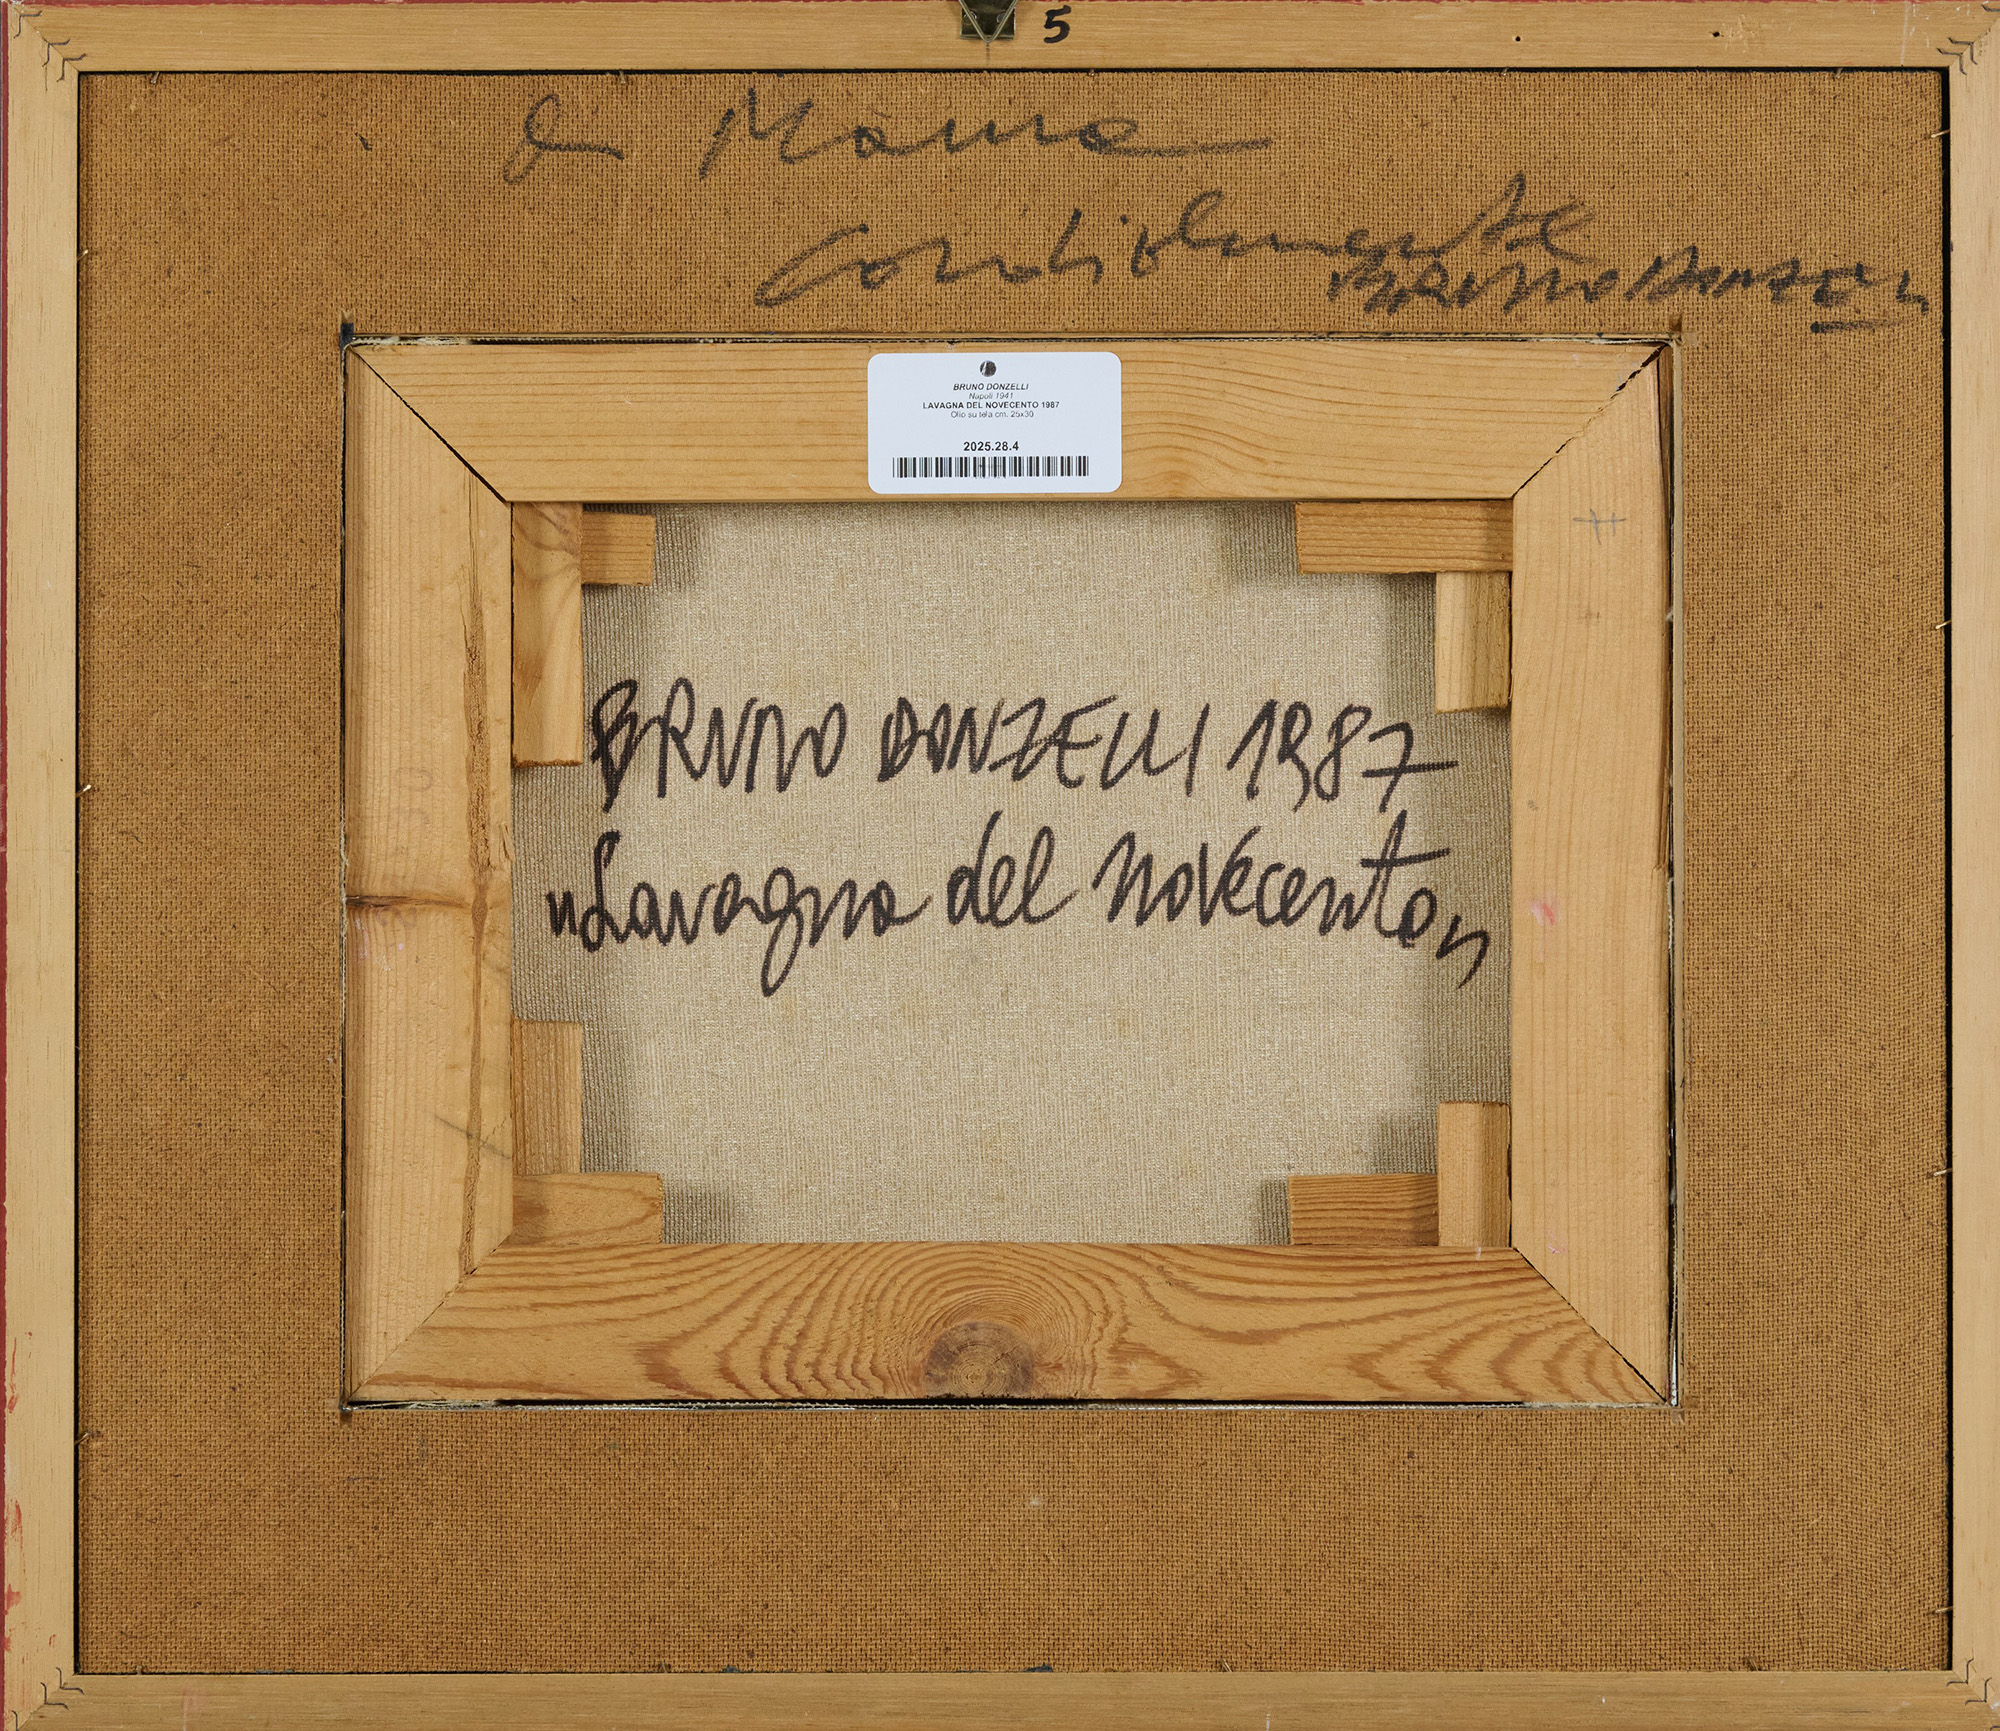 5
cordialmente
BRUNO DONZELLI
BRUNO DONZELLI
Napoli 1941
LAVAGNA DEL NOVECENTO 1987
Olio su tela cm. 25x30
2025.28.4
BRUNO DONZELLI 1987
"Lavagna del novecento"